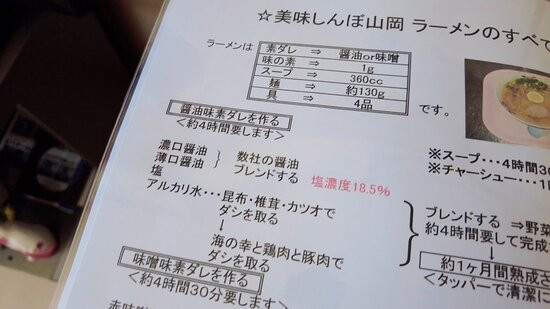 ☆美味しんぼ山岡 ラーメンのすべて
ラーメンは
素ダレ ⇒ 醤油or味噌
味の素 ⇒ 1g
スープ ⇒ 360cc
麺 ⇒ 約130g
具 ⇒ 4品
です。
醤油味素ダレを作る
<約4時間要します>
濃口醤油
薄口醤油
塩
数社の醤油
ブレンドする
塩濃度18.5%
アルカリ水・・・昆布・椎茸・カツオで
ダシを取る
↓
海の幸と鶏肉と豚肉で
ダシを取る
※スープ・・・4時間30
※チャーシュー・・・1
ブレンドする ⇒野菜
約4時間要して完成
↓
約1ヶ月間熟成さ
<タッパーで清潔に
味噌味素ダレを作る
<約4時間30分要します>